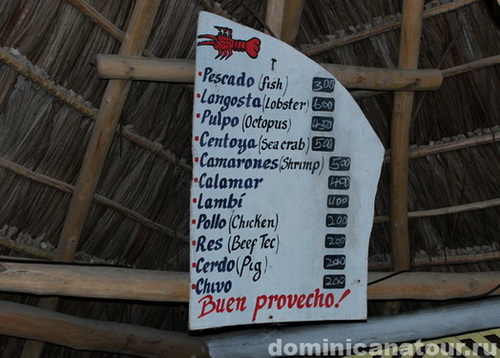 Pescado (fish) 300
Langosta (Lobster) 600
Pulpo (Octopus) 450
Centoya (Sea crab) 500
Camarones (Shrimp) 500
Calamar 400
Lambí 400
Pollo (Chicken) 200
Res (Beef Tec) 200
Cerdo (Pig) 200
Chivo 200
Buen provecho!
dominicanatour.ru